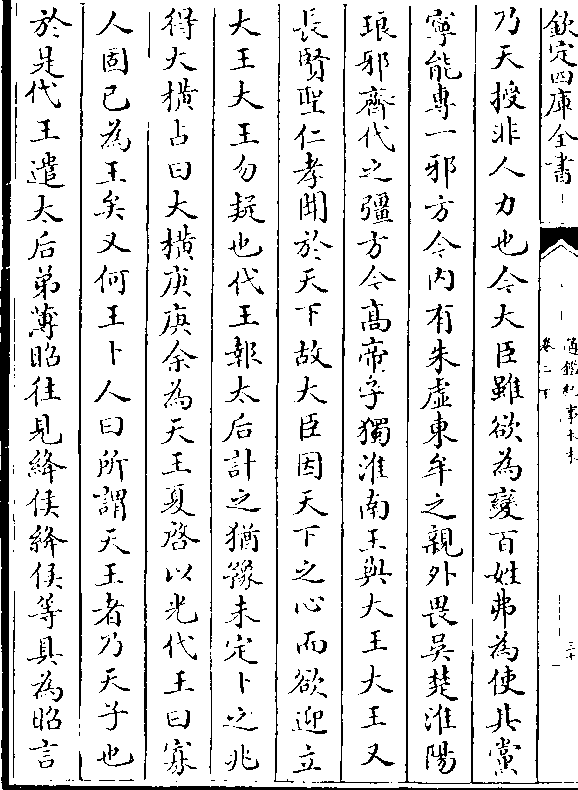 欽定四庫全書
乃天授非人力也今大臣雖欲為變百姓弗為使其黨
寧能專一邪方今内有朱虚東牟之親外畏吳楚淮陽
琅邪齊代之彊方今髙帝子獨淮南王與大王大王又
長賢聖仁孝聞於天下故大臣因天下之心而欲迎立
大王大王勿疑也代王報太后計之猶豫未定卜之兆
得大横占曰大横庚庚余為天王夏啓以光代王曰寡
人固已為王矣又何王卜人曰所謂天王者乃天子也
於是代王遣太后弟薄昭往見絳侯絳侯等具為昭言